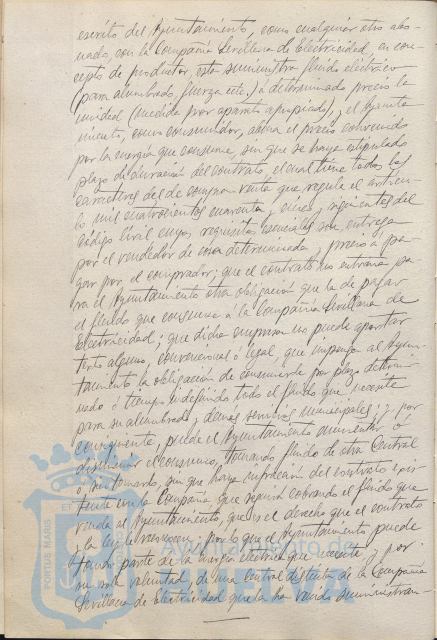 escrito del Ayuntamiento, como cualquier otro abo-
nado, con la Compañía Sevillana de Electricidad, en con-
cepto de productor, esta suministra fluido eléctrico
(para alumbrado, fuerza etc.) a determinado precio la
unidad (medida por aparato apropiado), y el Ayunta-
miento, como consumidor, abona el precio convenido
por la energía que consume, sin que se haya estipulado
plazo de duración del contrato, el cual tiene todos los
caracteres del de compra-venta que regula el artícu-
lo mil cuatrocientos cuarenta y cinco y siguientes del
Código Civil cuyos requisitos esenciales son entrega
por el vendedor de cosa determinada y precio a pa-
gar por el comprador; que el contrato no entraña pa-
ra el Ayuntamiento otra obligación que la de pagar
el fluido que consuma a la Compañía Sevillana de
Electricidad; que dicha empresa no puede aportar
texto alguno, convencional ó legal, que imponga al Ayun-
tamiento la obligación de consumirle por plazo determi-
nado ó tiempo indefinido todo el fluido que necesite
para su alumbrado y demás servicios municipales; y, por
consiguiente, puede el Ayuntamiento aumentar ó
disminuir el consumo, tomando fluido de otra Central
ó no tomando, sin que haya infracción del contrato exis-
tente con la Compañía que seguirá cobrando el fluido que
venda al Ayuntamiento, que es el derecho que el contrato
y la ley le reconocen; por lo que el Ayuntamiento puede
tomar parte de la energía eléctrica que necesite y por
su sola voluntad, de una central distinta de la Compañía
Sevillana de Electricidad que la ha venido suministran-
PORTUS MARIS ET
Ayuntamiento de